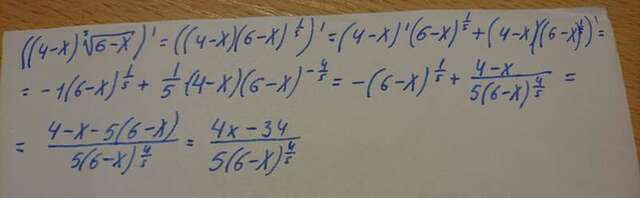 ((4-x)⁵√(6-x))' = ((4-x)(6-x)^{1/5})' = (4-x)'(6-x)^{1/5} + (4-x)((6-x)^{1/5})' =
= -1(6-x)^{1/5} + 1/5 · (4-x)(6-x)^{-4/5} = -(6-x)^{1/5} + (4-x)/(5(6-x)^{4/5}) =
= (4-x-5(6-x))/(5(6-x)^{4/5}) = (4x-34)/(5(6-x)^{4/5})